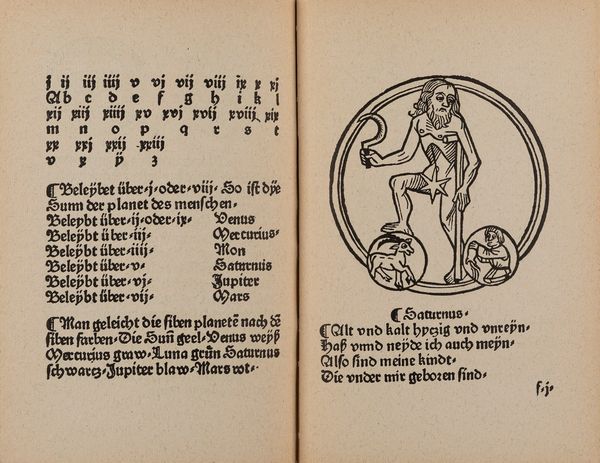 j ij iij iiij v vj vij viij ix x xj
A b c d e f g h i k l
xij xiij xiiij xv xvj xvij xviij xix
m n o p q r s t
xx xxj xxij xxiij
v x ÿ z
¶ Beleÿbet über·j·oder·viij· So ist dÿe
Sunn der planet des menschen·
Beleÿbt über·ij·oder·ix· Venus
Beleÿbt über·iij· Mercurius·
Beleÿbt über·iiij· Mon
Beleÿbt über·v· Saturnus
Beleÿbt über·vj· Jupiter
Beleÿbt über·vij· Mars
¶ Man geleicht die siben planetē nach dē
siben farben· Die Suñ geel·Venus weÿß
Mercurius graw·Luna grün Saturnus
schwartz·Jupiter blaw·Mars rot·
¶ Saturnus·
¶ Alt vnd kalt hytzig vnd vnreÿn·
Haß vnnd neÿde ich auch meÿn·
Also sind meine kindt·
Die vnder mir geboren sind·
f·j·